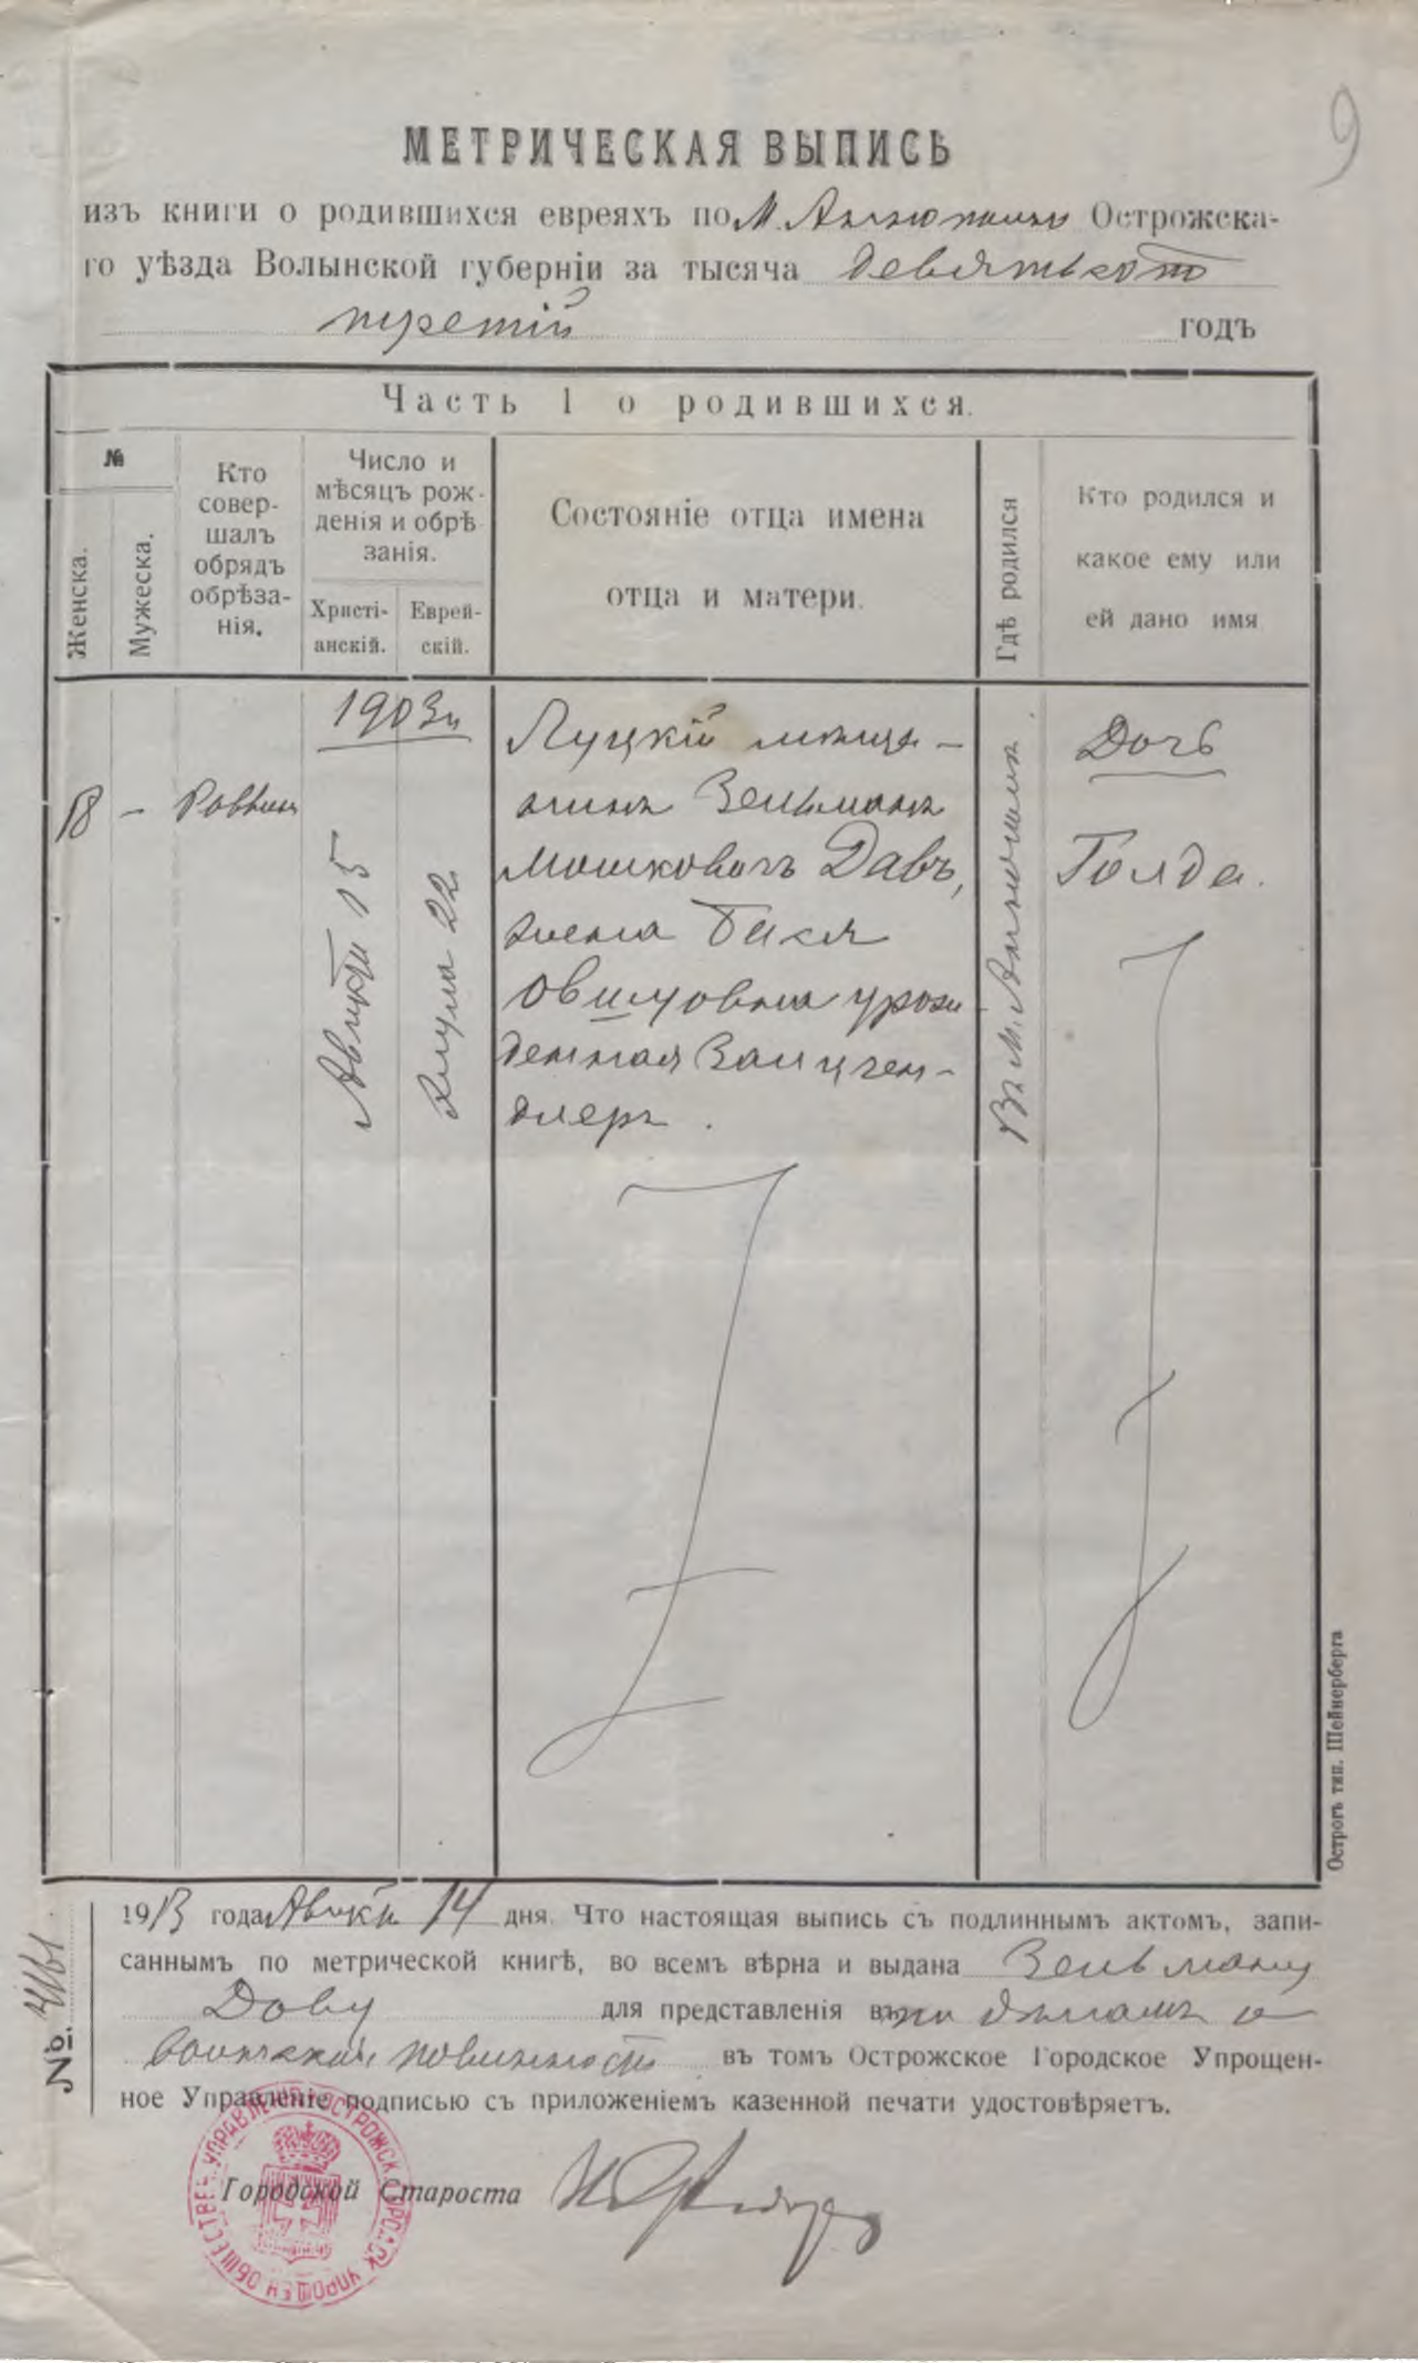 9
МЕТРИЧЕСКАЯ ВЫПИСЬ
изъ книги о родившихся евреяхъ по М. Аннополю Острожска-
го уѣзда Волынской губерніи за тысяча девятьсотъ
третій годъ
Часть 1 о родившихся.
№
Женска.
Мужеска.
Кто
совер-
шалъ
обрядъ
обрѣза-
нія.
Число и
мѣсяцъ рож-
денія и обрѣ
занія.
Христі-
анскій.
Еврей-
скій.
Состояніе отца имена
отца и матери.
Гдѣ родился
Кто родился и
какое ему или
ей дано имя
18
—
Раввинъ
1903 г.
Августа 15
22
Луцкій мѣща-
нинъ Зельманъ
Мошковичъ Давъ,
жена Бася
овшуовна урож
денная Залцген-
длеръ.
Въ М. Аннополѣ.
Дочь
Голда.
Острогъ тип. Шейнерберга
1913 года Август 14 дня. Что настоящая выпись съ подлиннымъ актомъ, запи-
саннымъ по метрической книгѣ, во всемъ вѣрна и выдана Зельману
Дову для представленія въ по дѣламъ о
воинской повинности въ томъ Острожское Городское Упрощен-
ное Управленіе подписью съ приложеніемъ казенной печати удостовѣряетъ.
№.
Городской Староста
УПРОЩЕН ОБЩЕСТВЕН. УПРАВЛЕНІЯ ОСТРОЖСК. ГОРОДСК